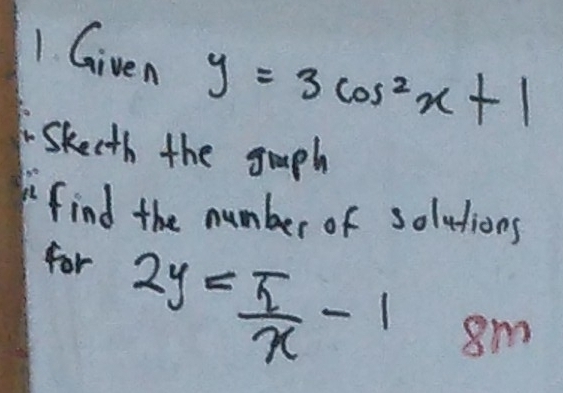 1. Given y = 3 cos² x + 1
i. Skecth the graph
ii find the number of solutions
for 2y = π/x - 1
8m